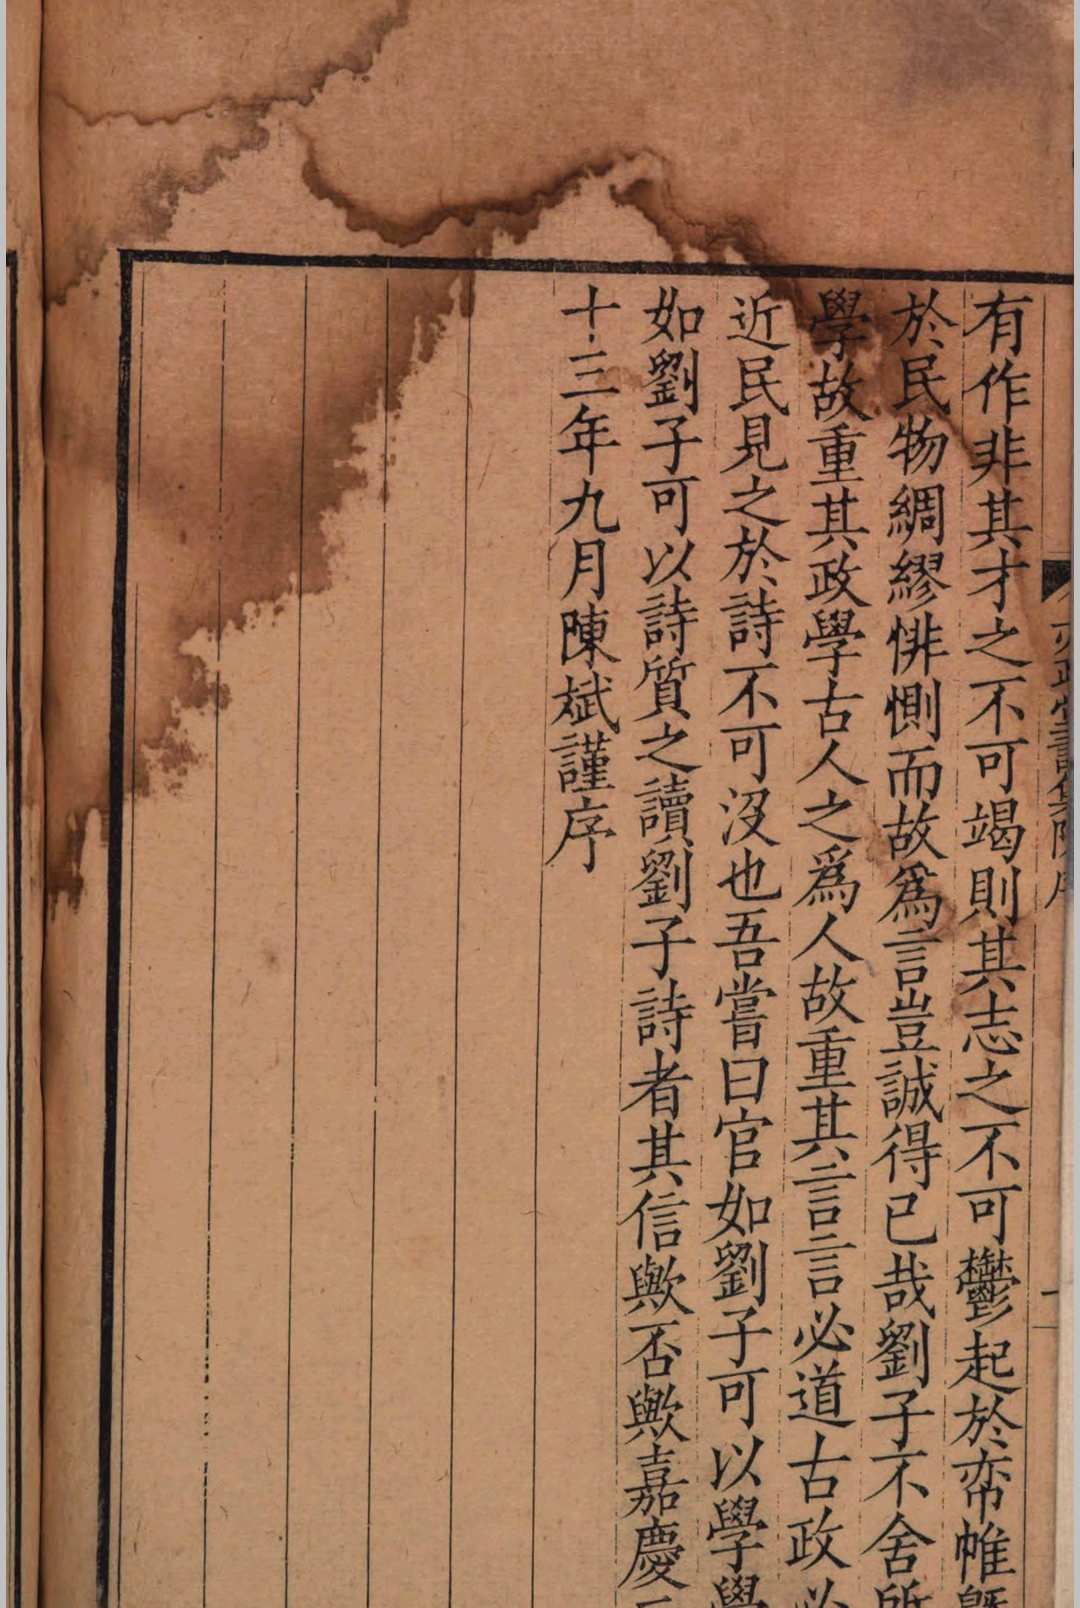 有作非其才之不可竭則其志之不可鬱起於帟帷
於民物綢繆悱惻而故爲言豈誠得已哉劉子不舍所
學故重其政學古人之爲人故重其言言必道古政必
近民見之於詩不可没也吾嘗曰官如劉子可以學學
如劉子可以詩質之讀劉子詩者其信歟否歟嘉慶二
十三年九月陳斌謹序